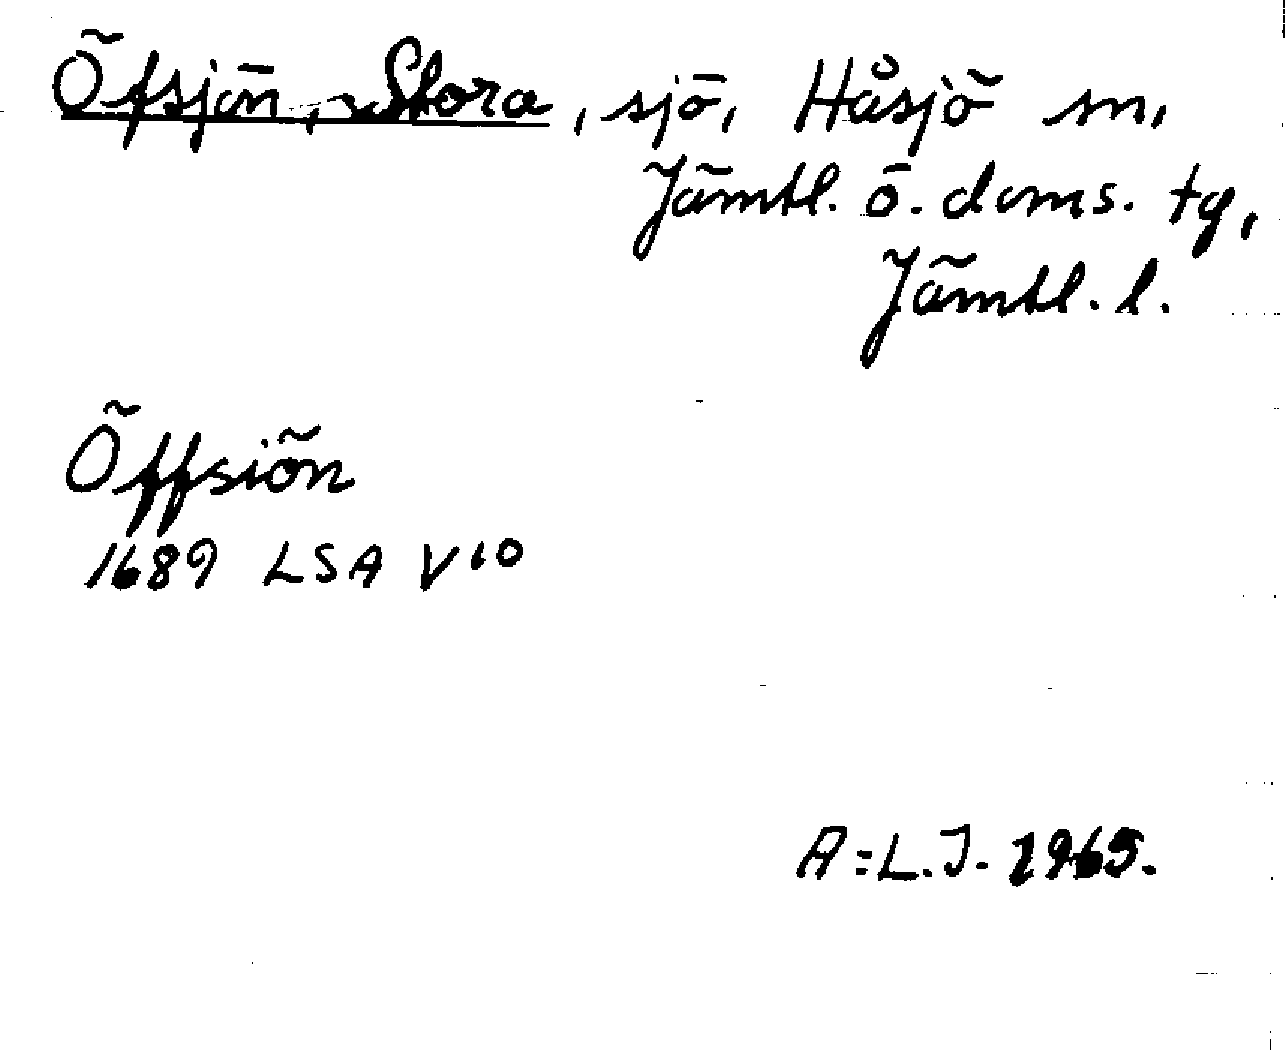 Öfsjön, Stora, sjö, Håsjö sn,
Jämtl. ö. doms. tg,
Jämtl. l.
Öffsiön
1689 LSA V 10
A:L.J. 1965.